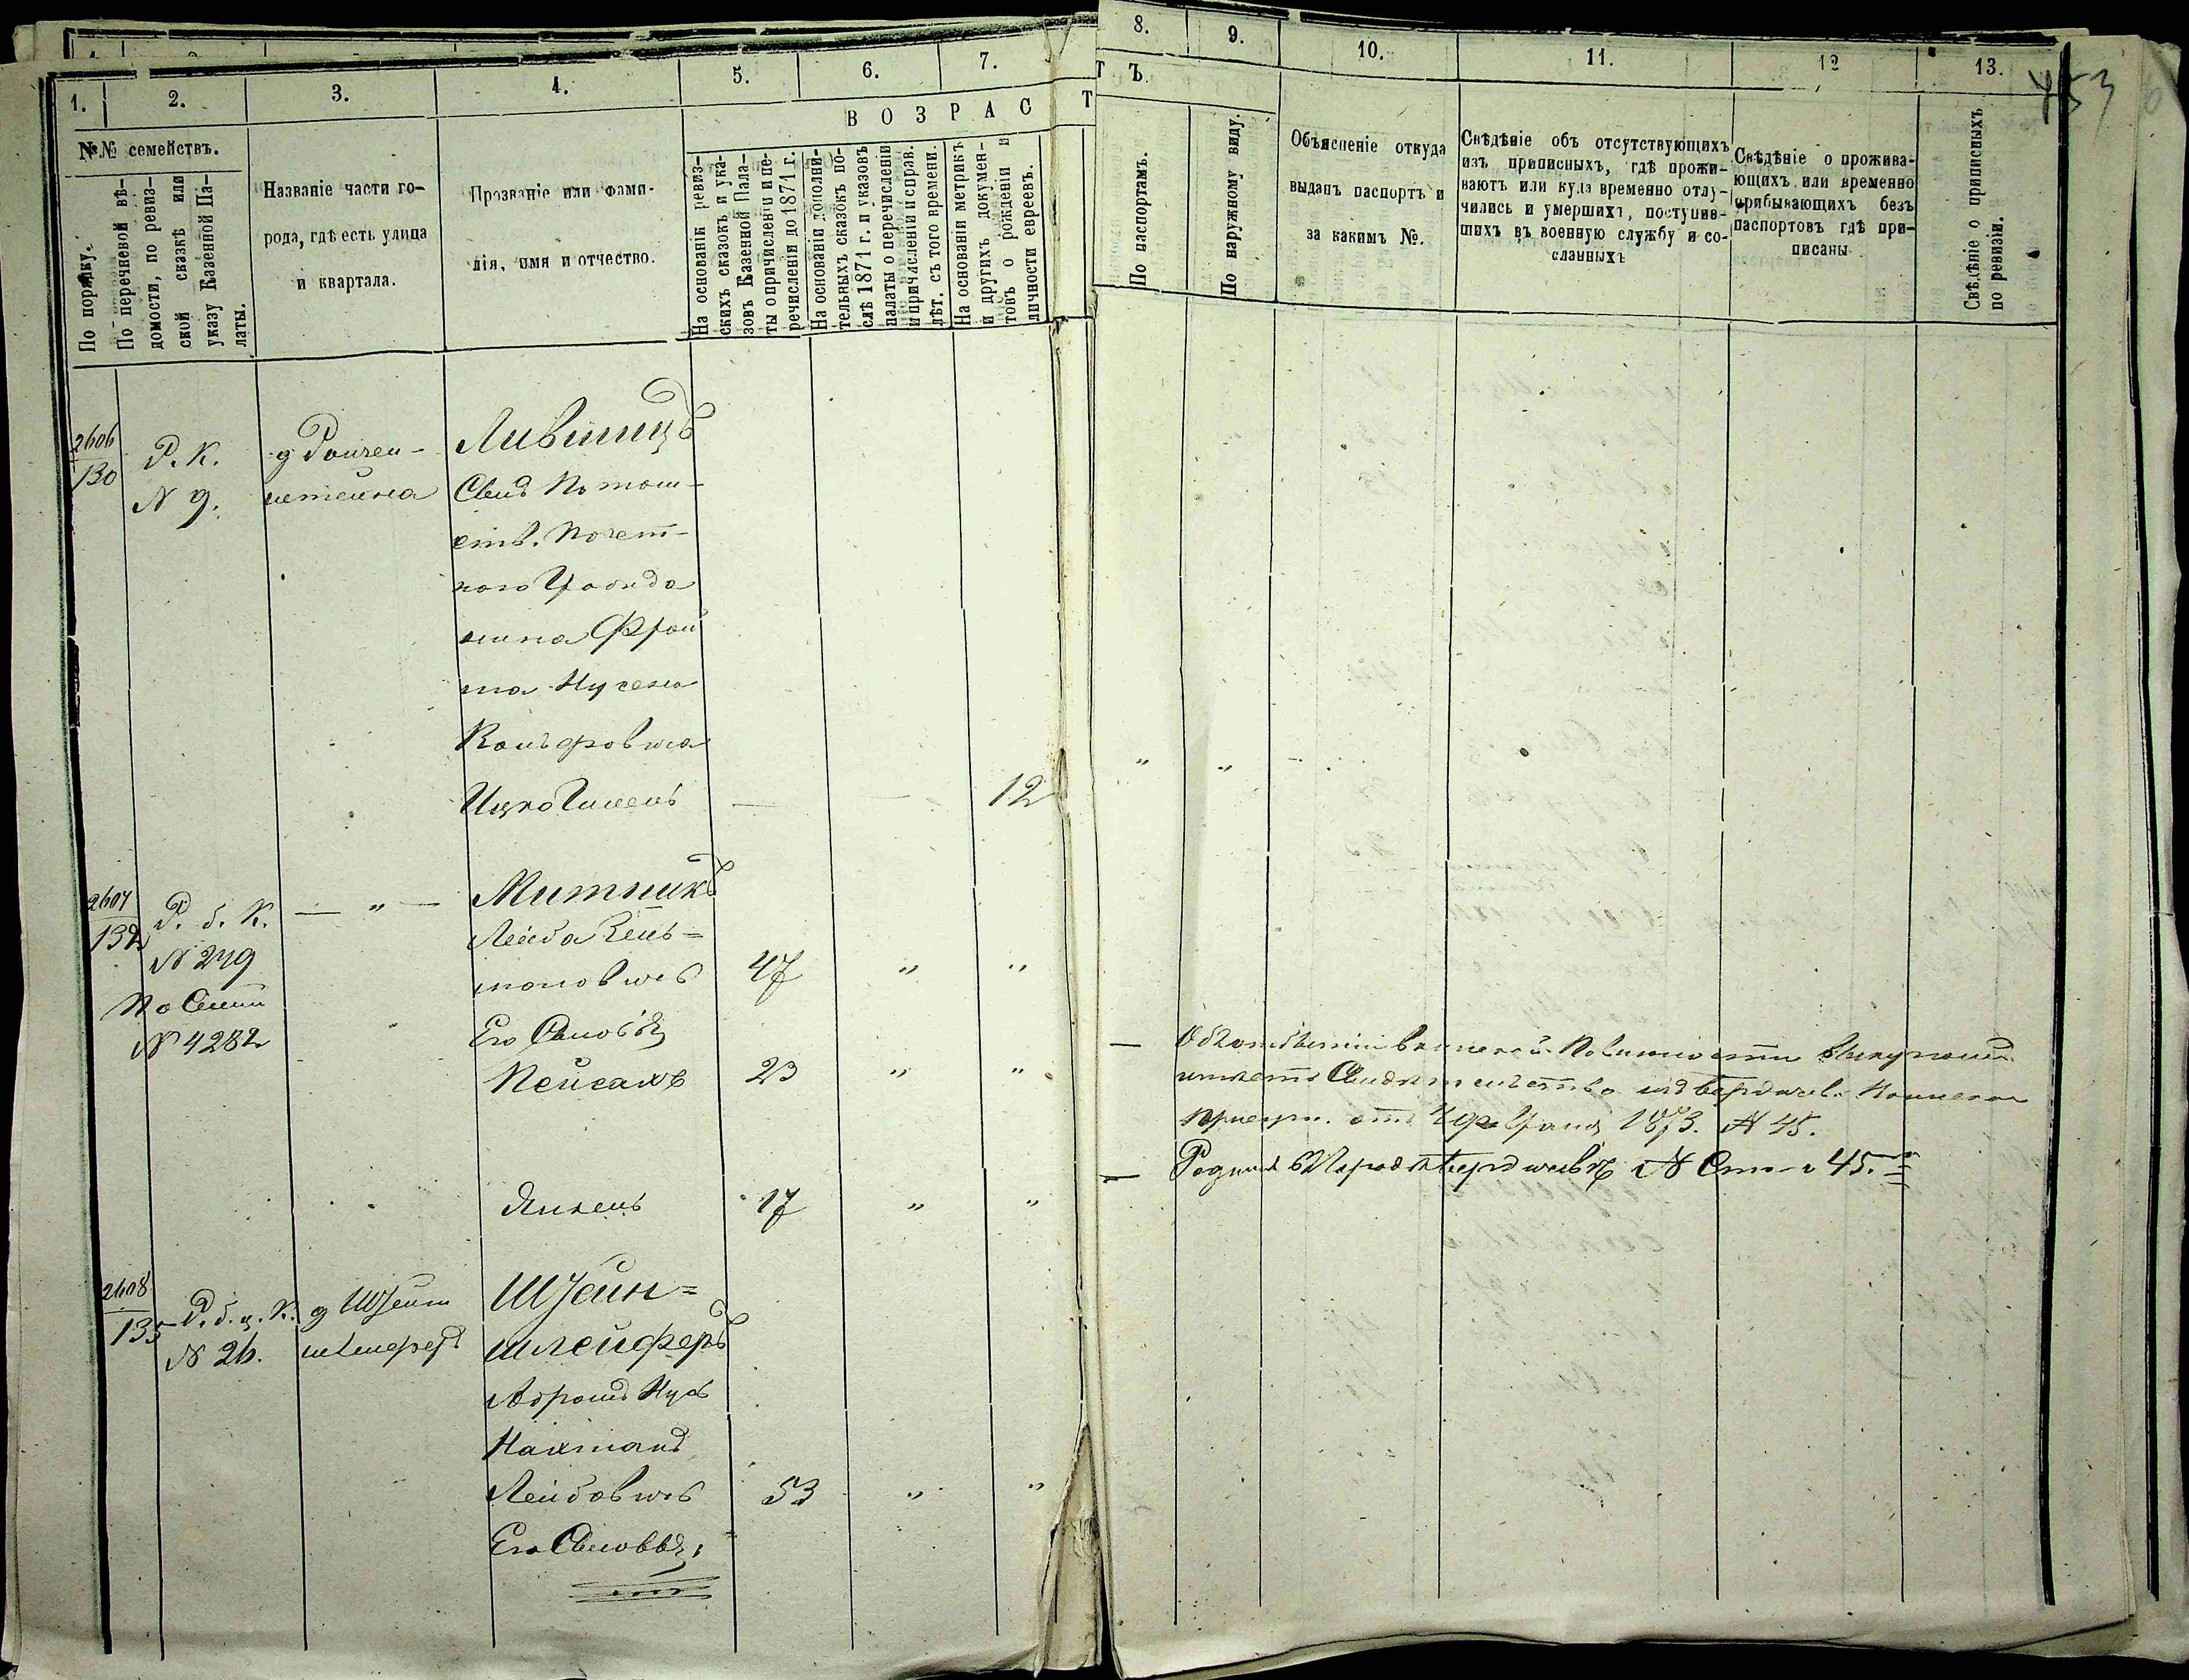 453
1.
2.
3.
4.
5.
6.
7.
8.
9.
10.
11.
12
13.
№№ семействъ.
По порядку.
По перечневой вѣ-
домости, по ревиз-
ской сказкѣ или
указу Казенной Па-
латы.
Названіе части го-
рода, гдѣ есть улица
и квартала.
Прозваніе или фами-
лія, имя и отчество.
ВОЗРАСТЪ
На основаніи ревиз-
скихъ сказокъ и ука-
зовъ Казенной Пала-
ты о причисленіи и пе-
речисленіи до 1871 г.
На основаніи дополни-
тельныхъ сказокъ по-
слѣ 1871 г. и указовъ
палаты о перечисленіи
и причисленіи и справ.
лѣт. съ того времени.
На основаніи метрикъ
и другихъ докумен-
товъ о рожденіи и
личности евреевъ.
По паспортамъ.
По наружному виду.
Объясненіе откуда
выданъ паспортъ и
за какимъ №.
Свѣдѣніе объ отсутствующихъ
изъ приписныхъ, гдѣ прожи-
ваютъ или куда временно отлу-
чились и умершихъ, поступив-
шихъ въ военную службу и со-
сланныхъ
Свѣдѣніе о прожива-
ющихъ или временно
прибывающихъ безъ
паспортовъ гдѣ при-
писаны
Свѣдѣніе о приписныхъ
по ревизіи.
2606
130
Р. К.
N 9.
Лившицъ
Сынъ Потом-
ств. Почет-
наго Гражда
нина Фрои
ма Нусена
Ицко Гимель
— — 12 " "
2607
132
Р. б. К.
N 249
По Семи
N 4282
— " —
Митникъ
Лейба Зель-
мановичъ 47 " "
Его Сыновья
Пейсахъ 23 " "
N 45.
Янкель 17 " "
Родился въ Городѣ Бердичевѣ N 45.
2608
135
Р. б. ц. К.
N 26.
Штейн=
шлейферъ
Абрамъ Нухъ
Нахманъ
Лейбовичъ 53 " "
Его Сыновья,